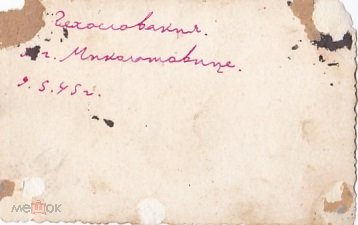 Чехословакия.
г. Миколотовице.
9.5.45г.
мешок